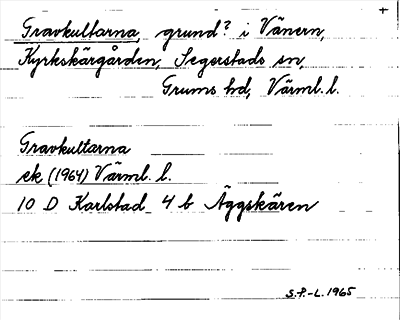 +
Gravkultarna, grund? i Vänern,
Kyrkskärgården, Segerstads sn,
Grums hd, Värml. l.
Gravkultarna
ek (1964) Värml. l.
10 D Karlstad 4 b Äggskären
S.P.-L. 1965